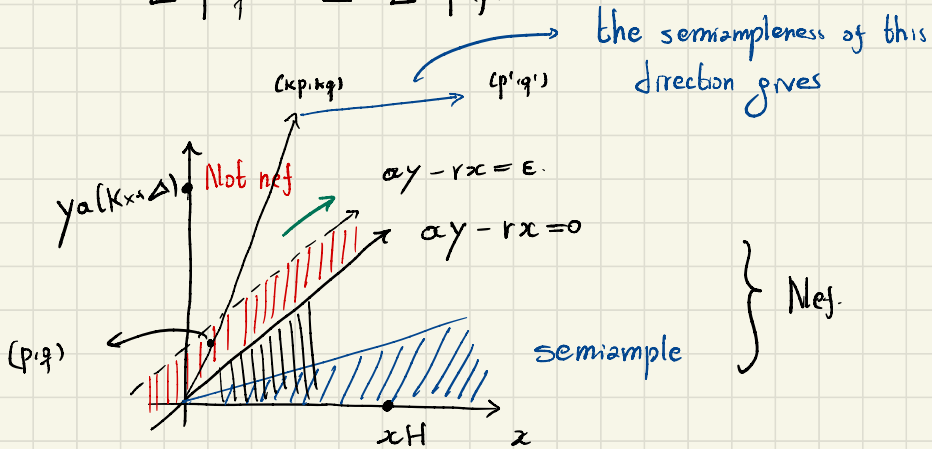 the semiampleness of this
direction gives
(kp,kq)
(p',q')
Not nef
ay - rx = ε.
ya(Kx+Δ)
ay - rx = 0
Nef.
(p,q)
semiample
xH
x